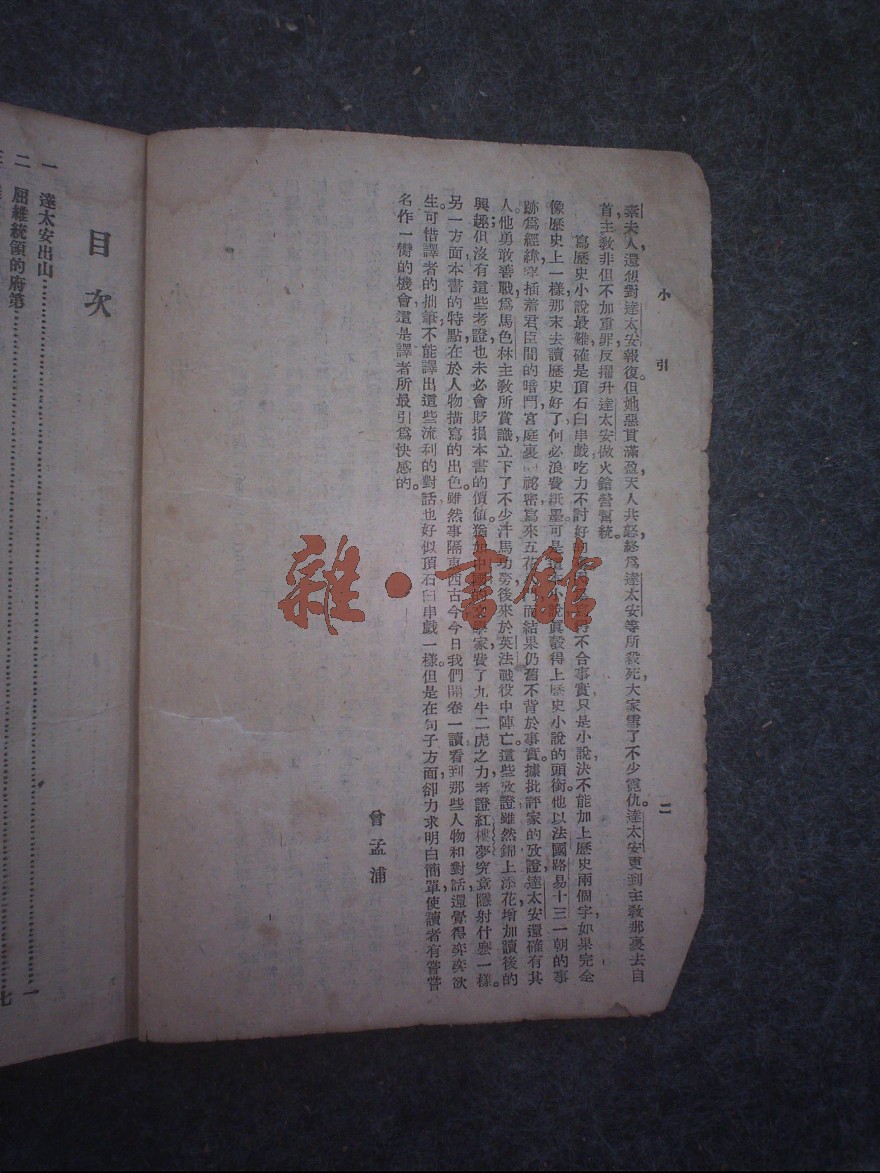 小引
二
素夫人還想對達太安報復。但她惡貫滿盈，天人共怒，終爲達太安等所殺死，大家雪了不少寃仇。達太安更到主教那裏去自
首，主教非但不加重罪，反擢升達太安做火鎗營暫統。
寫歷史小說最難，確是頂石臼串戲，吃力不討好 不合事實，只是小說，決不能加上歷史兩個字，如果完全
像歷史上一樣，那末去讀歷史好了，何必浪費紙墨。可是 眞彀得上歷史小說的頭銜。他以法國路易十三一朝的事
跡爲經緯，穿插着君臣間的暗鬥，宮庭裏 祕密，寫來五花 而結果仍舊不背於事實。據批評家的攷證，達太安還確有其
人。他勇敢善戰，爲馬色林主教所賞識，立下了不少汗馬功勞，後來於英法戰役中陣亡。這些攷證雖然錦上添花，增加讀後的
興趣；但沒有這些考證，也未必會貶損本書的價値。猶 家費了九牛二虎之力，考證紅樓夢究竟隱射什麽一樣。
另一方面，本書的特點在於人物描寫的出色。雖然事隔東西古今，今日我們開卷一讀，看到那些人物和對話，還覺得奕奕欲
生。可惜譯者的拙筆，不能譯出這些流利的對話，也好似頂石臼串戲一樣。但是在句子方面，卻力求明白簡單，使讀者有嘗嘗
名作一臠的機會，這是譯者所最引爲快感的。
曾孟浦
雜·書館
目次
一 達太安出山……一
二 屈維統領的府第……七